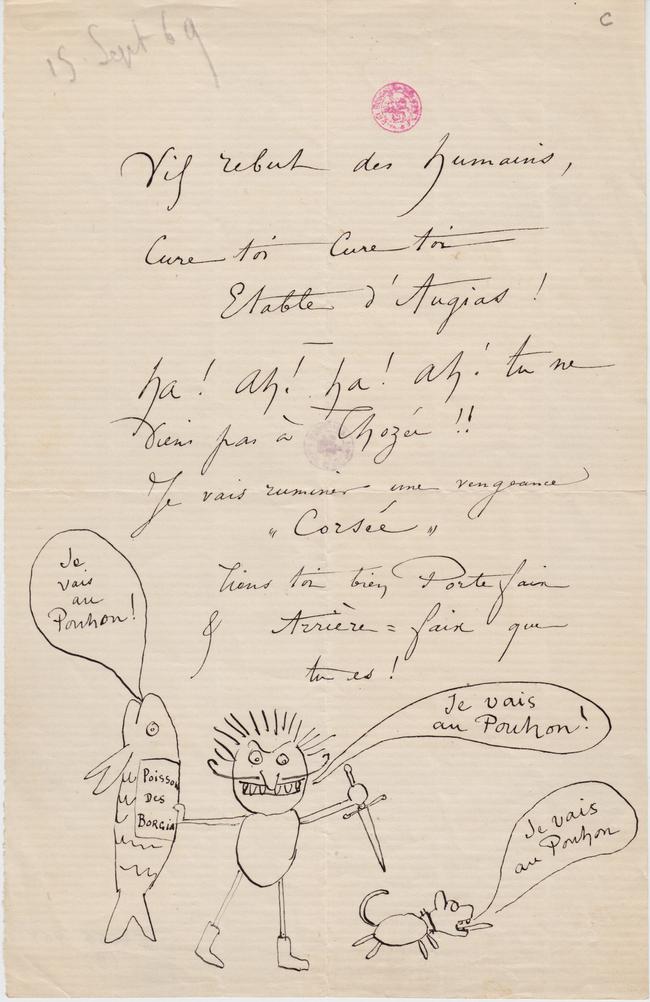 15 Sept 69
C
Vil rebut des humains,
Cure toi Cure toi
Etable d'Augias !
ha ! ah ! ha ! ah ! tu ne
viens pas à Thozée !!
Je vais ruminer une vengeance
"Corsée"
Tiens toi bien Portefaix
& Arrière=faix que
tu es !
Je
vais
au
Pouhon !
Je vais
au Pouhon !
Poisson
Des
Borgia
Je vais
au Pouhon